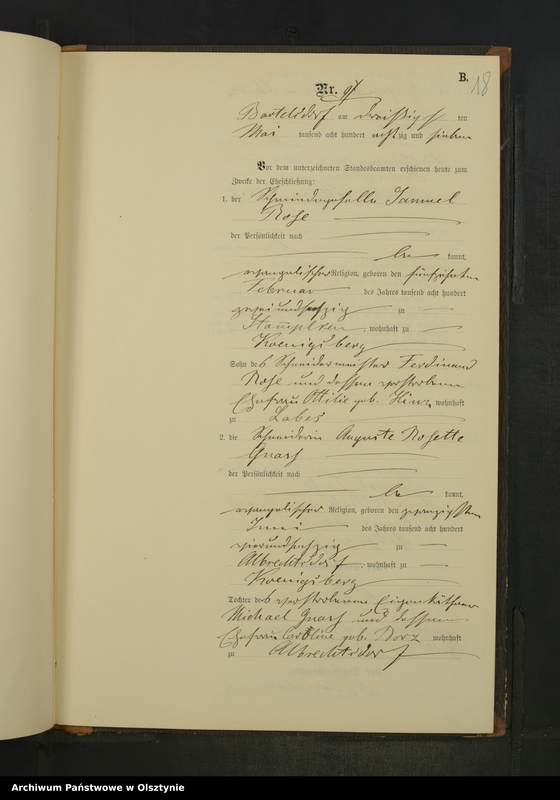 B.
18
Nr. 9
Bartelsdorf am dreißigsten
Mai tausend acht hundert achtzig und sieben
Vor dem unterzeichneten Standesbeamten erschienen heute zum
Zwecke der Eheschließung:
1. der Schmiedegeselle Samuel
Rose
der Persönlichkeit nach
be kannt,
evangelischer Religion, geboren den fünfzehnten
Februar des Jahres tausend acht hundert
zweiundsechzig zu
wohnhaft zu
Koenigsberg
Sohn des Schneidermeister Ferdinand
Rose und dessen verstorbenen
Ehefrau Ottilie geb. Hinz wohnhaft
zu Labes
2. die Schneiderin Auguste Rosette
der Persönlichkeit nach
be kannt,
evangelischer Religion, geboren den zwanzigsten
Juni des Jahres tausend acht hundert
vierundsechzig zu
Albrechtsdorf, wohnhaft zu
Koenigsberg
Tochter des verstorbenen Eigenkäthner
Michael und dessen
Ehefrau Caroline geb. Dorz wohnhaft
zu Albrechtsdorf
Archiwum Państwowe w Olsztynie